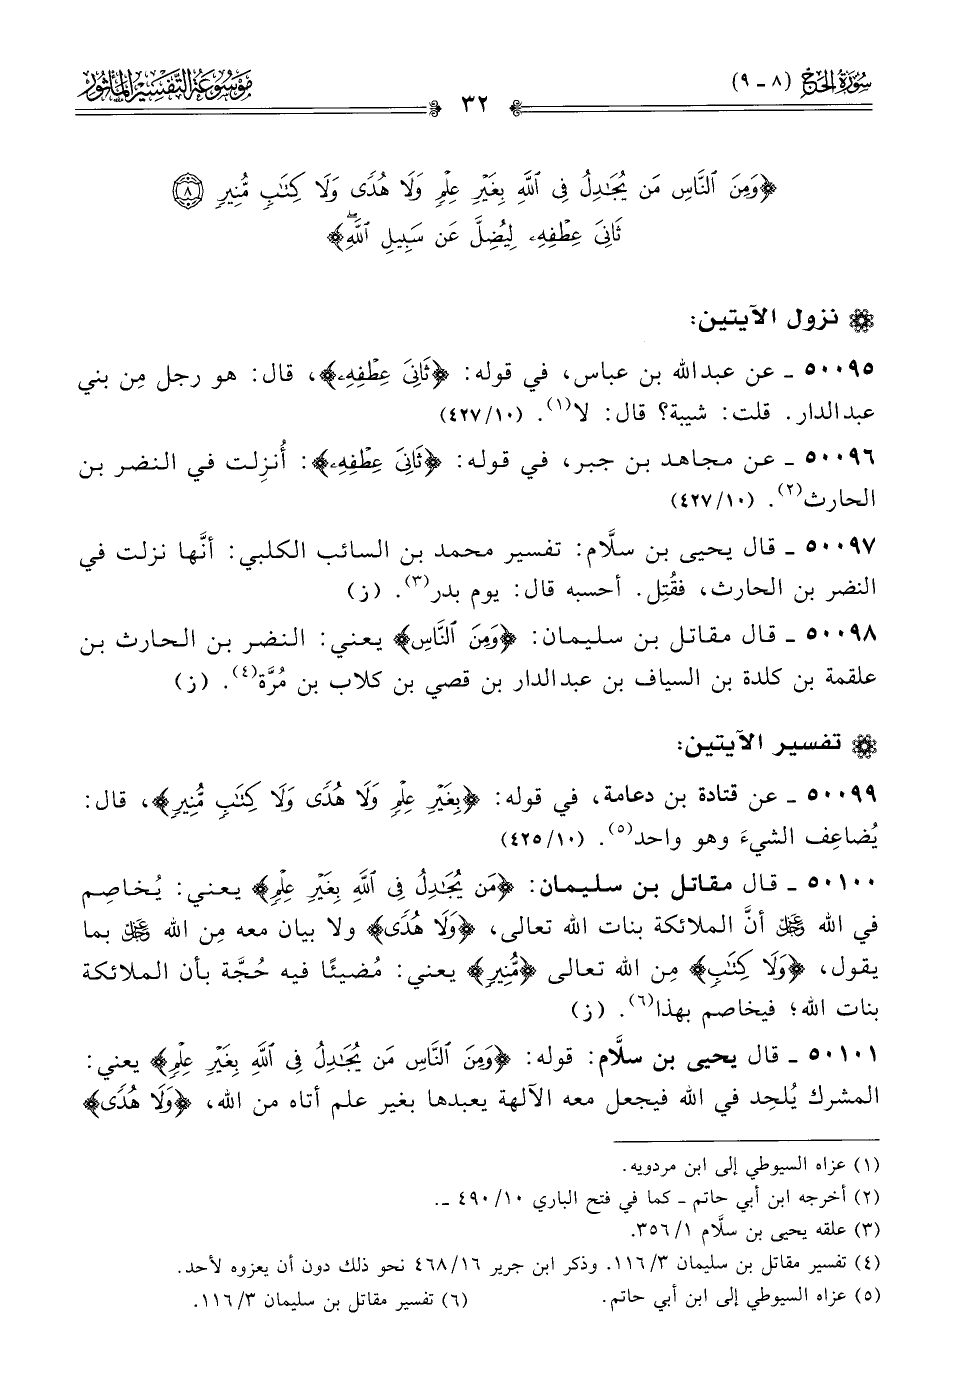 سورة الحج (٨ - ٩)
٣٢
موسوعة التفسير المأثور
﴿وَمِنَ ٱلنَّاسِ مَن يُجَٰدِلُ فِى ٱللَّهِ بِغَيْرِ عِلْمٍ وَلَا هُدًى وَلَا كِتَٰبٍ مُّنِيرٍ ⑧
ثَانِىَ عِطْفِهِۦ لِيُضِلَّ عَن سَبِيلِ ٱللَّهِۖ﴾
نزول الآيتين:
٥٠٠٩٥ ـ عن عبدالله بن عباس، في قوله: ﴿ثَانِىَ عِطْفِهِۦ﴾، قال: هو رجل مِن بني
عبدالدار. قلت: شيبة؟ قال: لا(١). (١٠/٤٢٧)
٥٠٠٩٦ ـ عن مجاهد بن جبر، في قوله: ﴿ثَانِىَ عِطْفِهِۦ﴾: أُنزِلت في النضر بن
الحارث(٢). (١٠/٤٢٧)
٥٠٠٩٧ ـ قال يحيى بن سلَّام: تفسير محمد بن السائب الكلبي: أنَّها نزلت في
النضر بن الحارث، فقُتِل. أحسبه قال: يوم بدر(٣). (ز)
٥٠٠٩٨ ـ قال مقاتل بن سليمان: ﴿وَمِنَ ٱلنَّاسِ﴾ يعني: النضر بن الحارث بن
علقمة بن كلدة بن السياف بن عبدالدار بن قصي بن كلاب بن مُرَّة(٤). (ز)
تفسير الآيتين:
٥٠٠٩٩ ـ عن قتادة بن دعامة، في قوله: ﴿بِغَيْرِ عِلْمٍ وَلَا هُدًى وَلَا كِتَٰبٍ مُّنِيرٍ﴾، قال:
يُضاعِف الشيءَ وهو واحد(٥). (١٠/٤٢٥)
٥٠١٠٠ ـ قال مقاتل بن سليمان: ﴿مَن يُجَٰدِلُ فِى ٱللَّهِ بِغَيْرِ عِلْمٍ﴾ يعني: يُخاصِم
في الله ﷿ أنَّ الملائكة بنات الله تعالى، ﴿وَلَا هُدًى﴾ ولا بيان معه مِن الله ﷿ بما
يقول، ﴿وَلَا كِتَٰبٍ﴾ مِن الله تعالى ﴿مُّنِيرٍ﴾ يعني: مُضيئًا فيه حُجَّة بأن الملائكة
بنات الله؛ فيخاصم بهذا(٦). (ز)
٥٠١٠١ ـ قال يحيى بن سلَّام: قوله: ﴿وَمِنَ ٱلنَّاسِ مَن يُجَٰدِلُ فِى ٱللَّهِ بِغَيْرِ عِلْمٍ﴾ يعني:
المشرك يُلحِد في الله فيجعل معه الآلهة يعبدها بغير علم أتاه من الله، ﴿وَلَا هُدًى﴾
(١) عزاه السيوطي إلى ابن مردويه.
(٢) أخرجه ابن أبي حاتم - كما في فتح الباري ١٠/٤٩٠ -.
(٣) علقه يحيى بن سلَّام ١/٣٥٦.
(٤) تفسير مقاتل بن سليمان ٣/١١٦. وذكر ابن جرير ١٦/٤٦٨ نحو ذلك دون أن يعزوه لأحد.
(٥) عزاه السيوطي إلى ابن أبي حاتم. (٦) تفسير مقاتل بن سليمان ٣/١١٦.